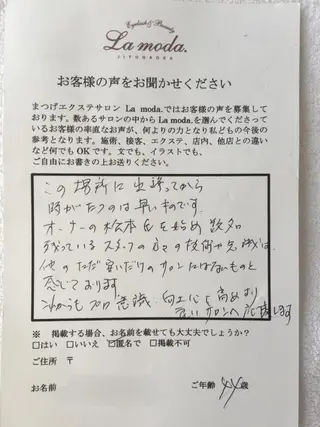 Eyelash & Beauty
La moda.
JIYUGAOKA
お客様の声をお聞かせください
まつげエクステサロン La moda.ではお客様の声を募集して
おります。数あるサロンの中からLa moda.を選んでくださって
いるお客様の率直なお声が、何よりの力となり私どもの今後の
参考となります。施術、接客、エクステ、店内、他店との違い
など何でもOKです。文でも、イラストでも、
ご自由にお書きの上お送りください。
この場所に出逢ってから
時がたつのは早いものです。
オーナーの松本氏を始め数多
残っているスタッフの日々の技術や意識は
他のただ安いだけのサロンにはないものと
感じております
これからもプロ意識、向上心を高め
良いサロンへ応援します
※ 掲載する場合、お名前を載せても大丈夫でしょうか?
□はい □いいえ ☑匿名で □掲載不可
ご住所 〒
お名前 ご年齢 歳